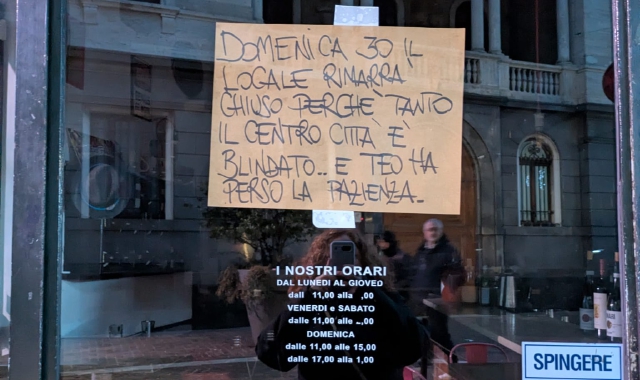 DOMENICA 30 IL
LOCALE RIMARRA
CHIUSO PERCHE' TANTO
IL CENTRO CITTA' E'
BLINDATO.. E TEO HA
PERSO LA PAZIENZA..
I NOSTRI ORARI
DAL LUNEDI AL GIOVED
dall 11,00 alla ,00
VENERDI e SABATO
dalle 11,00 alle ,00
DOMENICA
dalle 11,00 alle 15,00
dalle 17,00 alla 1,00
SPINGERE